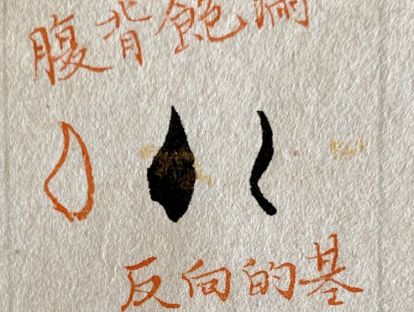 腹背飽滿
反向的基